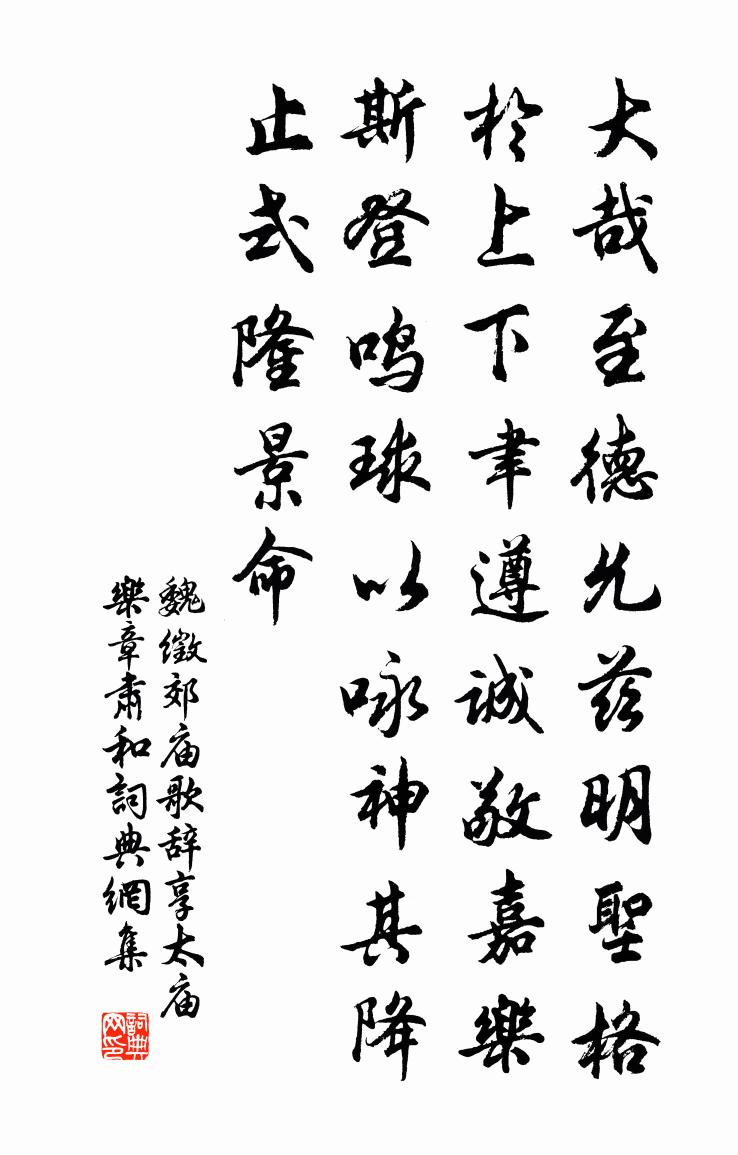 大哉至德允茲明聖格
於上下聿遵誠敬嘉樂
斯登鳴球以咏神其降
止式隆景命
魏徵郊庙歌辞享太庙
樂章肅和詞典網集
詞典网印